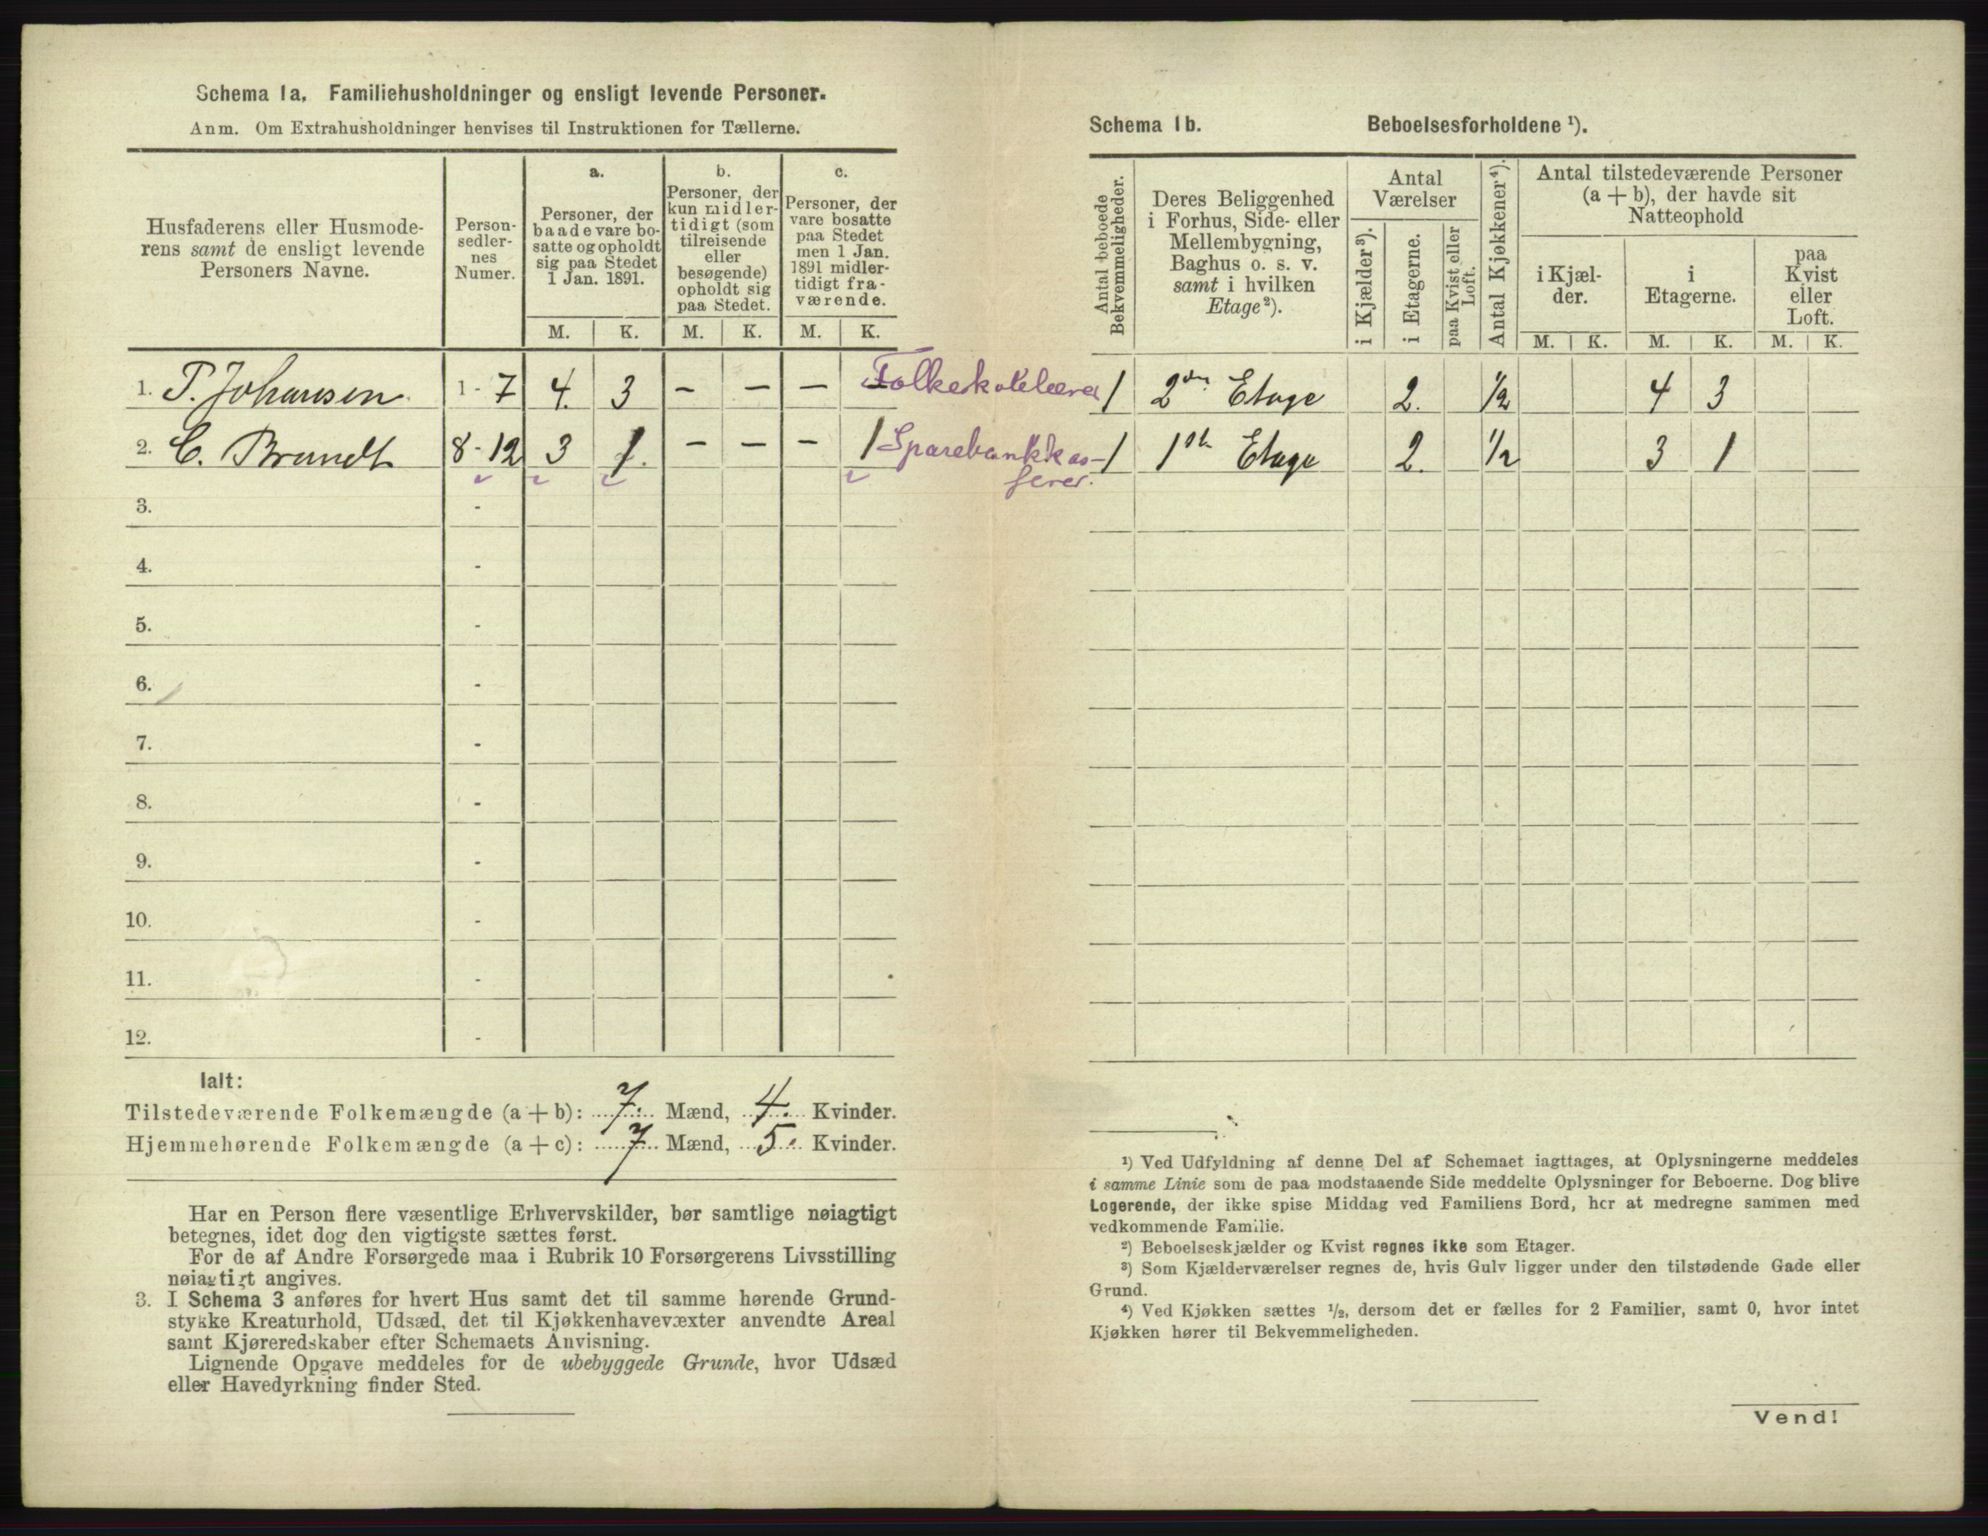 Schema 1a. Familiehusholdninger og ensligt levende Personer.
Anm. Om Extrahusholdninger henvises til Instruktionen for Tællerne.
Husfaderens eller Husmode-
rens samt de ensligt levende
Personers Navne.
Person-
sedler-
nes
Numer.
a.
Personer, der
baade vare bo-
satte og opholdt
sig paa Stedet
1 Jan. 1891.
M. K.
b.
Personer, der
kun midler-
tidigt (som
tilreisende
eller
besøgende)
opholdt sig
paa Stedet.
M. K.
c.
Personer, der
vare bosatte
paa Stedet
men 1 Jan.
1891 midler-
tidigt fra-
værende.
M. K.
1. P. Johansen 1 - 7 4. 3 – – – Folkeskolelærer
2. C. Brandt 8 - 12 3 1. – – – 1 Sparebankkas-
serer.
3. -
4. -
5. -
6. -
7. -
8. -
9. -
10. -
11. -
12. -
Ialt:
Tilstedeværende Folkemængde (a + b): 7. Mænd, 4. Kvinder.
Hjemmehørende Folkemængde (a + c): 7 Mænd, 5. Kvinder.
Har en Person flere væsentlige Erhvervskilder, bør samtlige nøiagtigt
betegnes, idet dog den vigtigste sættes først.
For de af Andre Forsørgede maa i Rubrik 10 Forsørgerens Livsstilling
nøiagtigt angives.
3. I Schema 3 anføres for hvert Hus samt det til samme hørende Grund-
stykke Kreaturhold, Udsæd, det til Kjøkkenhavevæxter anvendte Areal
samt Kjøreredskaber efter Schemaets Anvisning.
Lignende Opgave meddeles for de ubebyggede Grunde, hvor Udsæd
eller Havedyrkning finder Sted.
Schema 1b. Beboelsesforholdene ¹).
Antal beboede
Bekvemmeligheder.
Deres Beliggenhed
i Forhus, Side- eller
Mellembygning,
Baghus o. s. v.
samt i hvilken
Etage²).
Antal
Værelser
i Kjælder³).
i Etagerne.
paa Kvist eller
Loft.
Antal Kjøkkener⁴).
Antal tilstedeværende Personer
(a + b), der havde sit
Natteophold
i Kjæl-
der.
M. K.
i
Etagerne.
M. K.
paa
Kvist
eller
Loft.
M. K.
1 2den Etage 2. ½ 4 3
1 1ste Etage 2. ½ 3 1
¹) Ved Udfyldning af denne Del af Schemaet iagttages, at Oplysningerne meddeles
i samme Linie som de paa modstaaende Side meddelte Oplysninger for Beboerne. Dog blive
Logerende, der ikke spise Middag ved Familiens Bord, her at medregne sammen med
vedkommende Familie.
²) Beboelseskjælder og Kvist regnes ikke som Etager.
³) Som Kjælderværelser regnes de, hvis Gulv ligger under den tilstødende Gade eller
Grund.
⁴) Ved Kjøkken sættes ½, dersom det er fælles for 2 Familier, samt 0, hvor intet
Kjøkken hører til Bekvemmeligheden.
Vend!